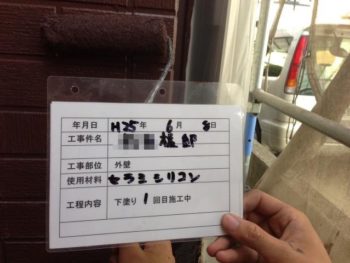 年月日 H25年 6月 8日
工事件名 様邸
工事部位 外壁
使用材料 セラミシリコン
工程内容 下塗り 1回目施工中